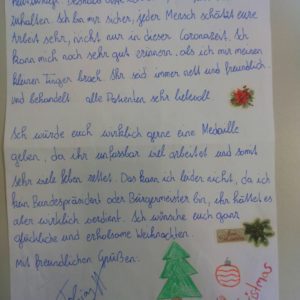 zuhalten. Ich bin mir sicher, jeder Mensch schätzt eure
Arbeit sehr, nicht nur in dieser Coronazeit. Ich
kann mich noch sehr gut erinnern, als ich mir meinen
kleinen Finger brach. Ihr seid immer nett und freundlich
und behandelt alle Patienten sehr liebevoll
Ich würde euch wirklich gerne eine Medaille
geben, da ihr unfassbar viel arbeitet und somit
sehr viele Leben rettet. Das kann ich leider nicht, da ich
kein Bundespräsident oder Bürgermeister bin, ihr hättet es
aber wirklich verdient. Ich wünsche euch ganz
glückliche und erholsame Weihnachten.
Mit freundlichen Grüßen.
Christmas